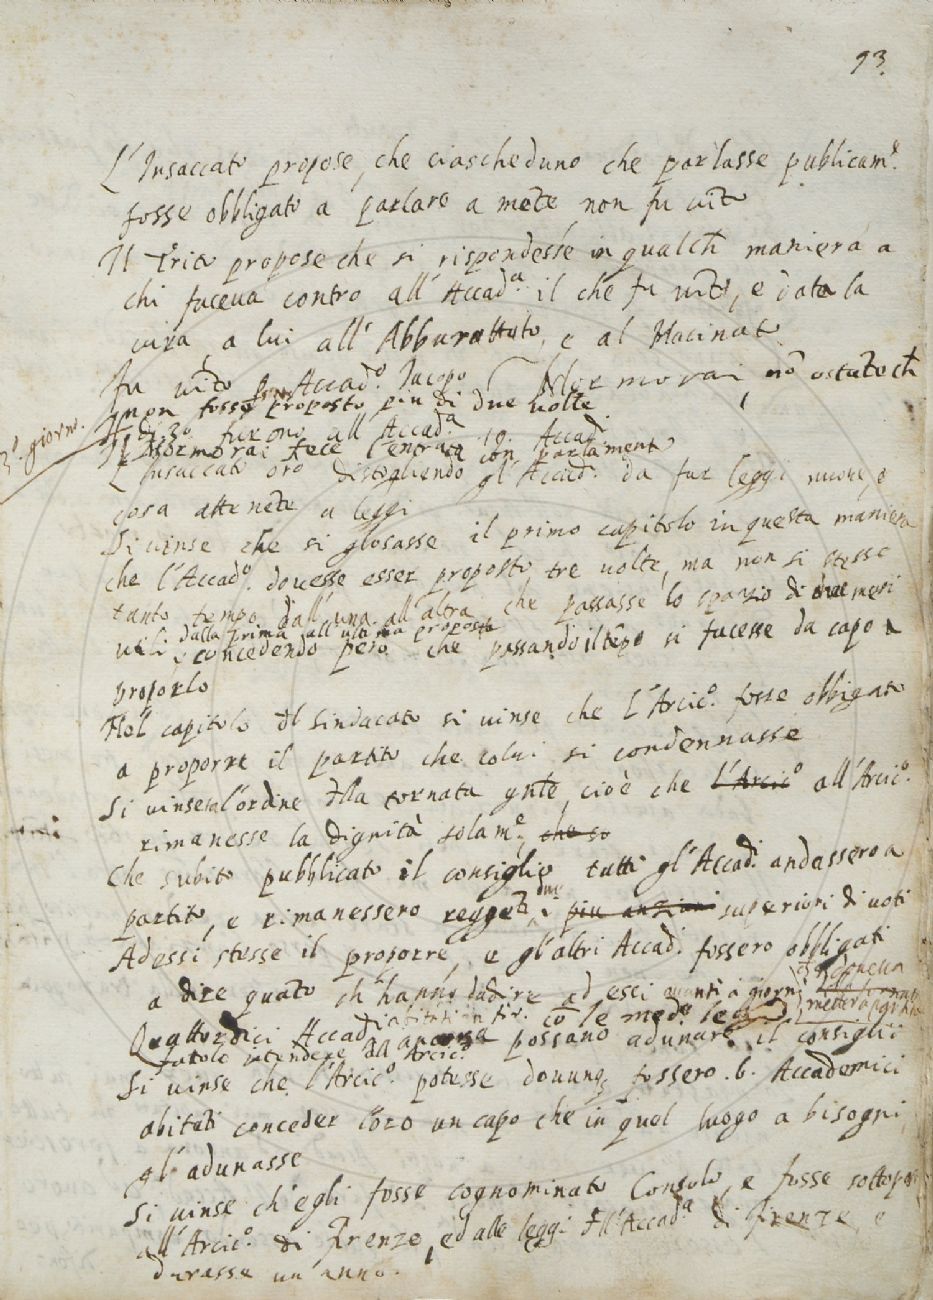 93.
L'Insaccato propose, che ciascheduno che parlasse publicam.e
fosse obbligato a parlare a mête non fu vîto
Il Trito propose che si rispondesse in qualch̃ maniera a
chi faceva contro all'Accad.a il che fu vîto, e data la
cura a lui all'Abburattato, e al Macinato
fu vîto p Accad.o Jacopo Normorai, nõ ostãte ch̃
non fosse proposto piu di due volte
3.o giorno.
A dì 30 furono all'Accad.a 19. Accad.i
Il Normorai fece l'entrata con parlamento
L'Insaccato orò distogliendo gl'Accad.i da far leggi nuove, o
cosa attenête a leggi
Si vinse che si glosasse il primo capitolo in questa maniera
che l'Accad.o dovesse esser proposto tre volte, ma non si stesse
tanto tempo dall'una all'altra che passasse lo spazio di due mesi
dalla prima all'ultima proposta
concedendo però che passando il têpo si facesse da capo a
proporlo
Nel capitolo dl sindacato si vinse che l'Arcic.o fosse obbligato
a proporre il partito che colui si condennasse
Si vinse l'ordine dlla tornata gñte, cioè che l'Arcic.o all'Arcic.o
rimanesse la dignità solam.e, che so
Che subito pubblicato il consiglio tutti gl'Accad.i andassero a
partito, e rimanessero reggêti i due piu anziani superiori di voti
Ad essi stesse il proporre, e gl'altri Accad.i fossero obbligati
a dire quãto ch'hanno da dire ad essi avanti a giorni
Quattordici Accad.i abitãti in Fir. cõ le med.e possano adunare il consiglio
fatolo intendere all'Arcic.o
Si vinse che l'Arcic.o potesse dovunq; fossero .6. Accademici
abitãti conceder loro un capo che in quel luogo a bisogni
gl'adunasse
Si vinse ch'egli fosse cognominato Consolo, e fosse sottopos
all'Arcic.o di Firenze, ed alle leggi dll'Accad.a di Firenze, e
durasse un'anno.